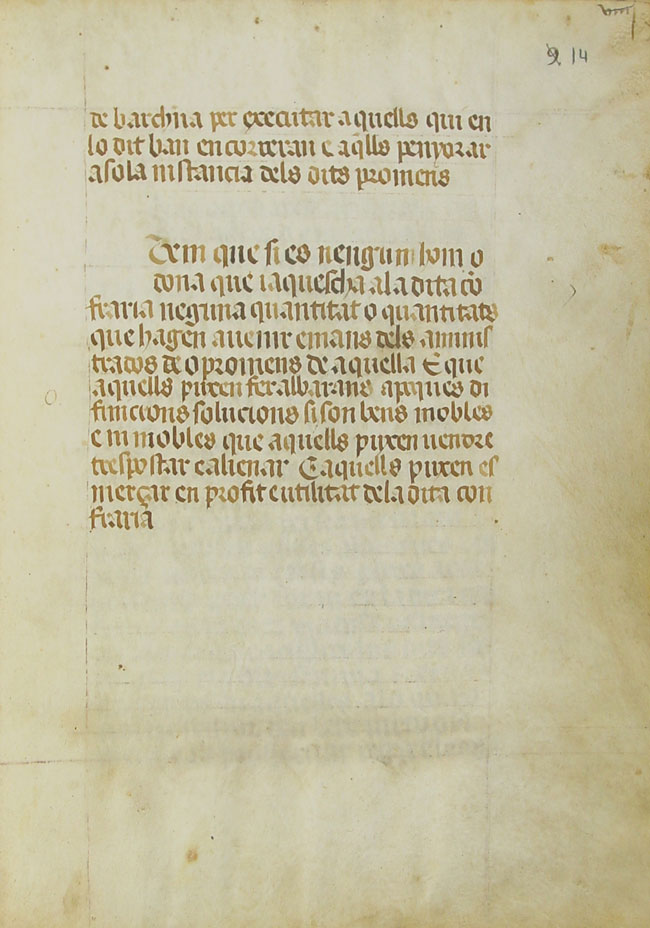 viiij
9 14
de barchna per executar aquells qui en
lo dit ban encorreran e aqlls penyorar
a sola instancia dels dits promens
Item que si es nengun hom o
dona que iaquescha a la dita cō
fraria neguna quantitat o quantitats
que hagen auenir en mans dels aminis
trados de o promens de aquella E que
aquells puxen fer albarans apoques di
finicions solucions si son bens mobles
e in mobles que aquells puxen uendre
trespostar e alienar E aquells puxen es
merçar en profit e utilitat de la dita con
fraria